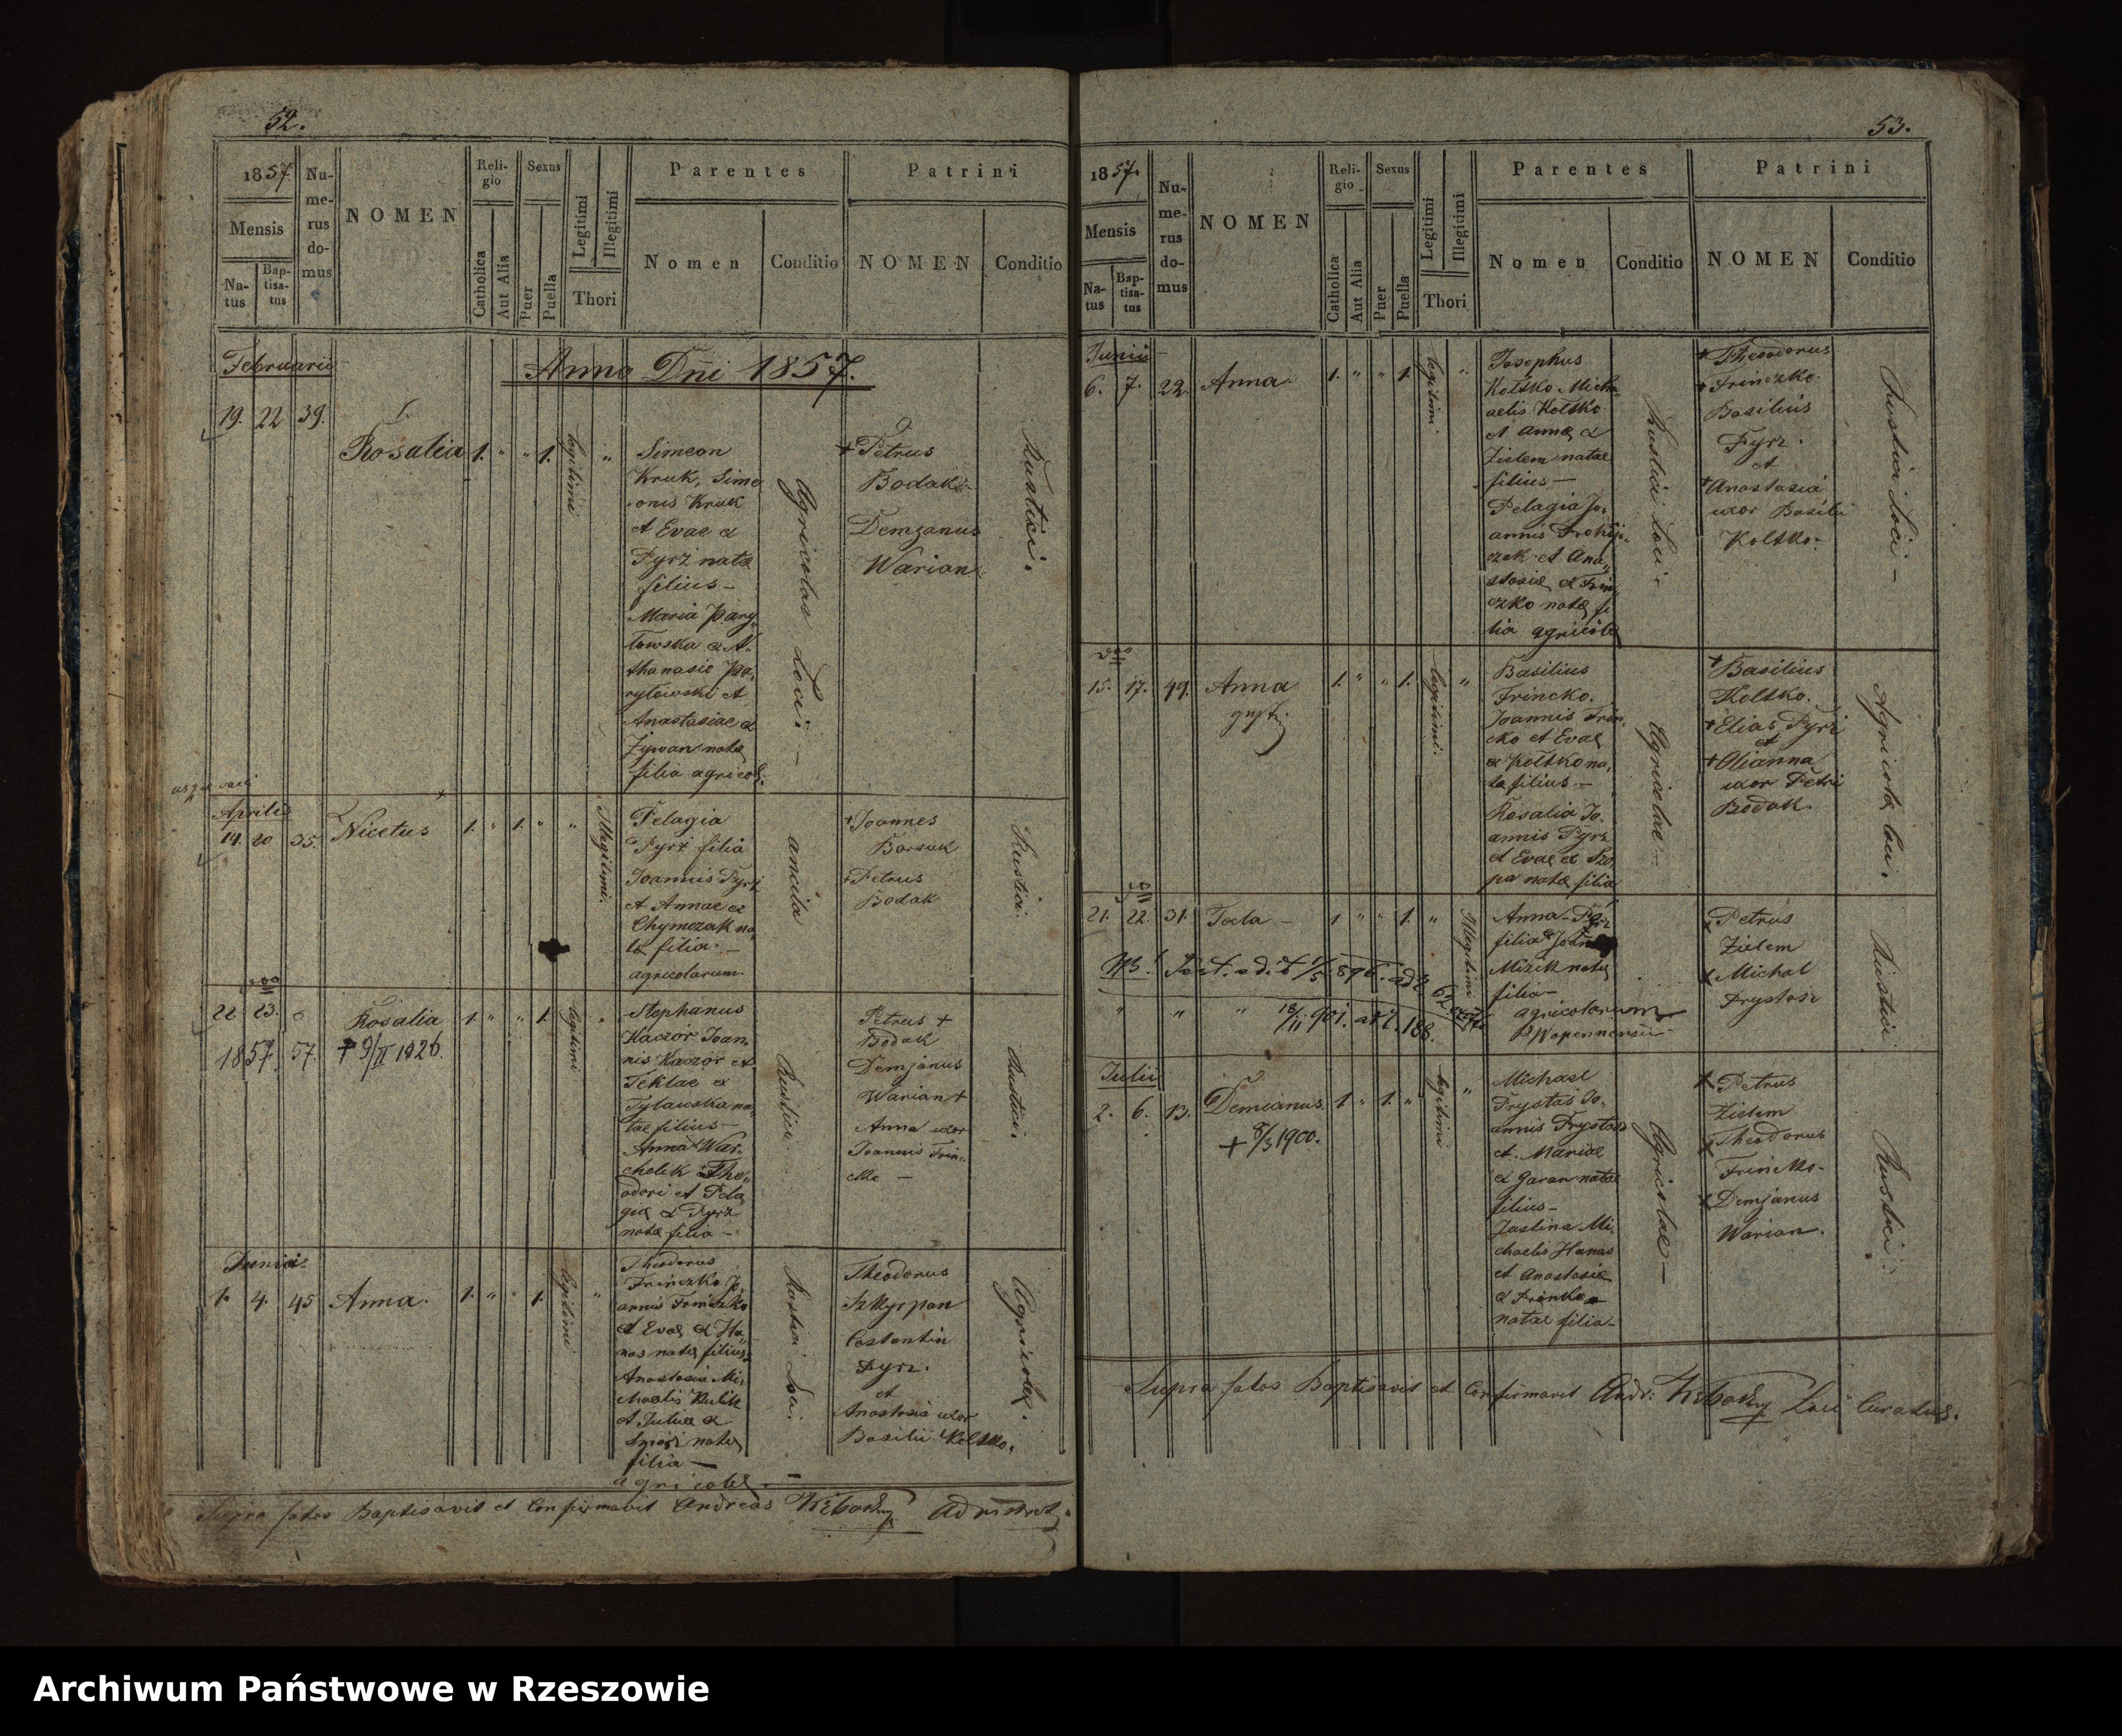 52.
1857.
Mensis
Na-
tus
Bap-
tisa-
tus
Nu-
me-
rus
do-
mus
NOMEN
Reli-
gio
Catholica
Aut Alia
Sexus
Puer
Puella
Legitimi
Illegitimi
Thori
Parentes
Nomen
Conditio
Patrini
NOMEN
Conditio
Februarii
Anno Dni 1857.
19. 22 39.
Rosalia 1. " " 1. legitimi "
Simeon
Kruk, Sime
onis Kruk
et Evae a
Pyrz natae
filius -
Maria Pary
towska a A
thanasio Pa
rytowski et
Anastasiae a
Zywan natae
filia agricol.
Agricolae Loci. -
+ Petrus
Bodak
Demjanus
Warian
Rustici.
Aprilis
14. 20 35. Nicetus 1. " 1. " " Illegitimi.
Pelagia
Pyrz filia
Joannis Pyrz
et Annae a
Chymczak na
ta filia. -
agricolarum.
ancila
+ Joannes
Barsuk
+ Petrus
Bodak
Rustici.
22. 23.
1857. 57.
Rosalia 1. " " 1. legitimi "
+ 9/II 1926.
Stephanus
Kaczor Joan
nis Kaczor et
Teklae a
Tylawska na
tae filius -
Anna War
cholik Theo
odori et Pela
giae a Pyrz
natae filia -
Rustici.
Petrus +
Bodak
Demjanus
Warian +
Anna uxor
Joannis Frin
cko -
Rustici.
Junii
1. 4. 45 Anna. 1. " " 1. legitimi "
Theodorus
Frinczko Jo
annis Frinczko
et Evae a Ha
nas natae filius
Anastasia Mi
chaelis Kulik
et Juliae a
natae
filia -
agricolae. -
Rustici Loci.
Theodorus
Szkyrpan
Costantin
Pyrz.
et
Anastasia uxor
Basilii Koltko.
Agricolae.
Supra fatos Baptisavit et Confirmavit Andreas
53.
1857.
Mensis
Na-
tus
Bap-
tisa-
tus
Nu-
me-
rus
do-
mus
NOMEN
Reli-
gio
Catholica
Aut Alia
Sexus
Puer
Puella
Legitimi
Illegitimi
Thori
Parentes
Nomen
Conditio
Patrini
NOMEN
Conditio
Junii
6. 7. 22. Anna. 1. " " 1. legitimi. "
Josephus
Koltko Mich
aelis Koltko
et Annae a
Zielem natae
filius -
Pelagia Jo
annis
czak et Ana
stasiae a Frin
czko natae fi
lia agricolae
Rustici Loci.
+ Theodorus
+ Frinczko.
Basilius
Pyrz.
et
+ Anastasia
uxor Basilii
Koltko.
Rustici Loci -
15. 17. 49. Anna 1. " " 1. legitimi. "
Basilius
Frincko.
Joannis Frin
cko et Evae
a Koltko na
tae filius -
Rosalia Jo
annis Pyrz
et Evae a Szo
pa natae filia
Agricolae -
+ Basilius
Koltko.
+ Elias Pyrz
et
+ Olianna
uxor Petri
Bodak.
Agricolae loci.
21. 22. 31. Tecla - 1 " " 1. " Illegitimi
Anna Pyrz
filia Joan
Mizik natae
filia -
agricolarum
Petrus
Zielem
Michal
Prystasz
Rustici
Julii
2. 6. 13. Demianus. 1. " 1. " legitimi "
+ 8/3 1900.
Michael
Prystas Jo
annis Prystas
et Mariae
a Garan natae
filius -
Justina Mi
chaelis Hanas
et Anastasiae
a Frincko
natae filia -
Agricolae -
Petrus
Zielem
Theodorus
Frincko -
Demjanus
Warian.
Rustici.
Supra fatos Baptisavit et Confirmavit Andr: Loci Curatus.
Archiwum Państwowe w Rzeszowie